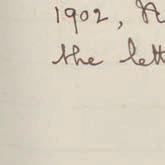 1902,
the lett